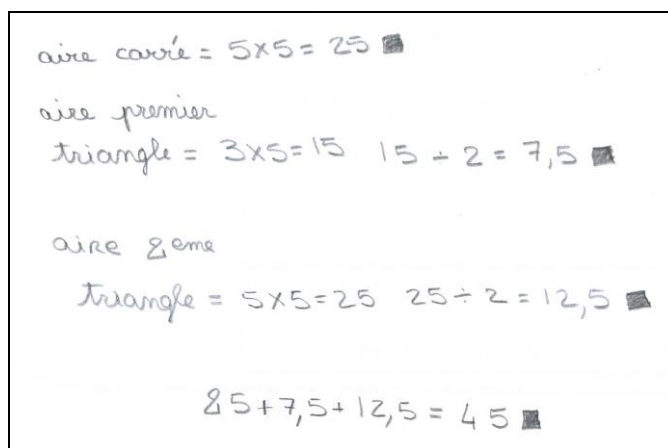 aire carré = 5×5 = 25
aire premier
triangle = 3×5=15 15 ÷ 2 = 7,5
aire 2eme
triangle = 5×5=25 25 ÷ 2 = 12,5
25+7,5+12,5 = 45